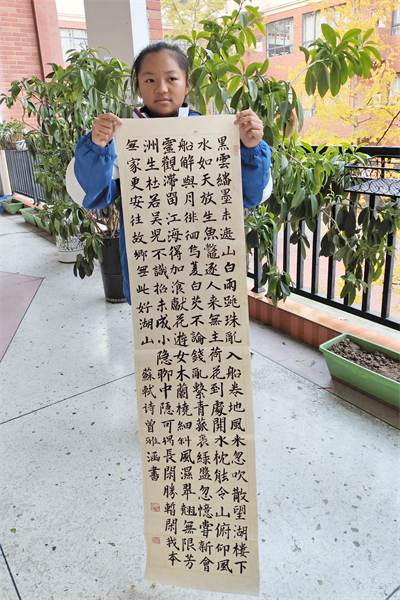 黑雲繙墨未遮山白雨跳珠亂入船卷地風來忽吹散望湖樓下
水如天放生魚鼈逐人來無主荷花到處開水枕能令山俯仰風
船解與月徘徊烏菱白芡不論錢亂繫青菰裹綠盤忽憶嘗新會
靈觀滯留江海得加飡獻花遊女木蘭橈細斜風濕翠翹無限芳
洲生杜若吳兒不識招未成小隱聊中隱可得長閑勝暫閑我本
無家更安往故鄉無此好湖山 蘇軾诗曾雅涵書